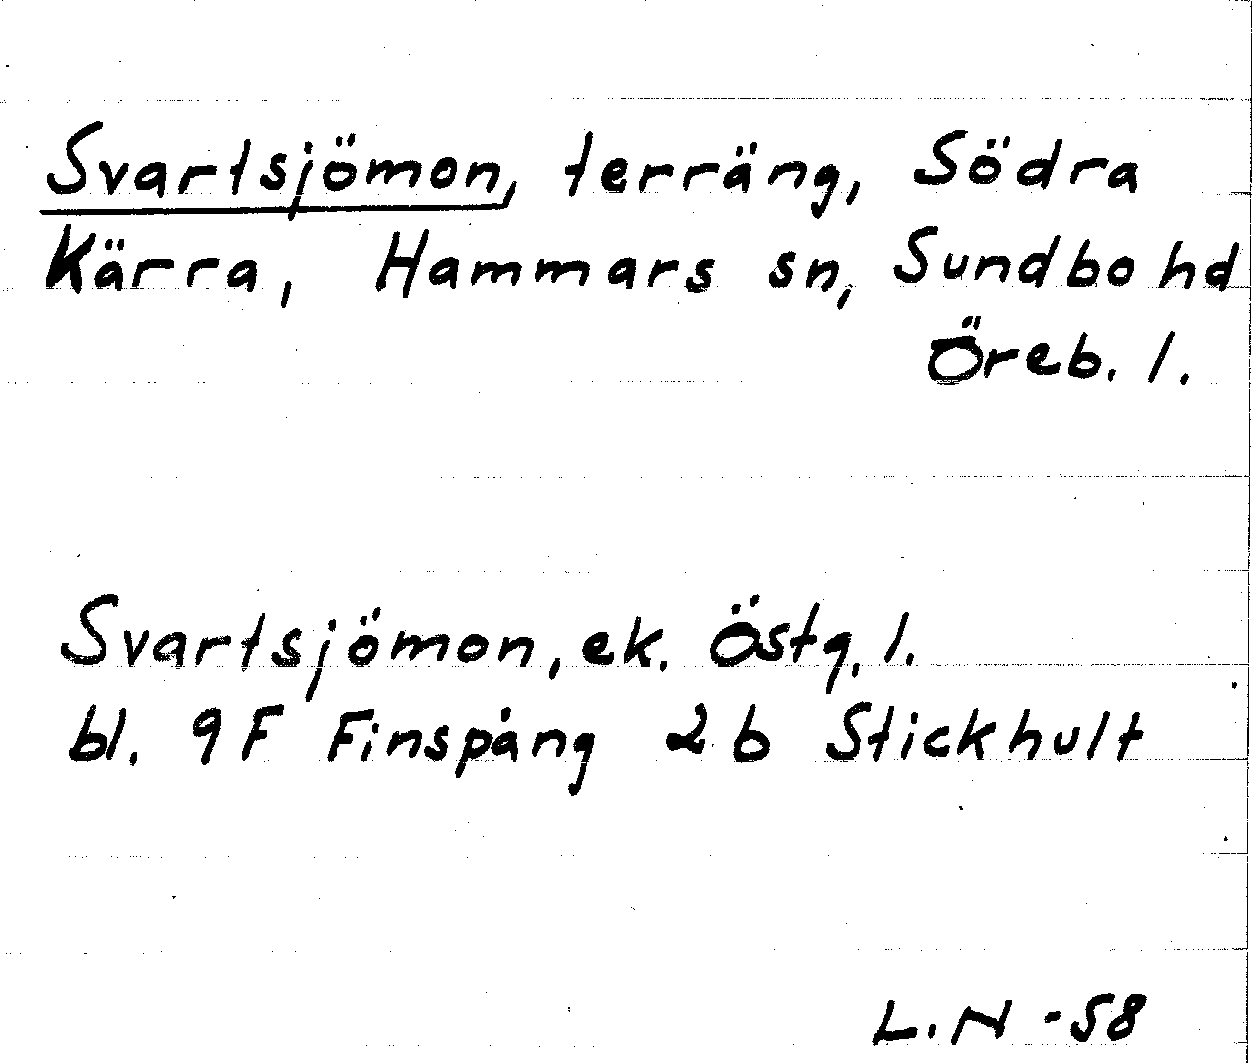 Svartsjömon, terräng, Södra
Kärra, Hammars sn, Sundbo hd
Öreb. l.
Svartsjömon, ek. Östg. l.
bl. 9F Finspång 2b Stickhult
L.N -58